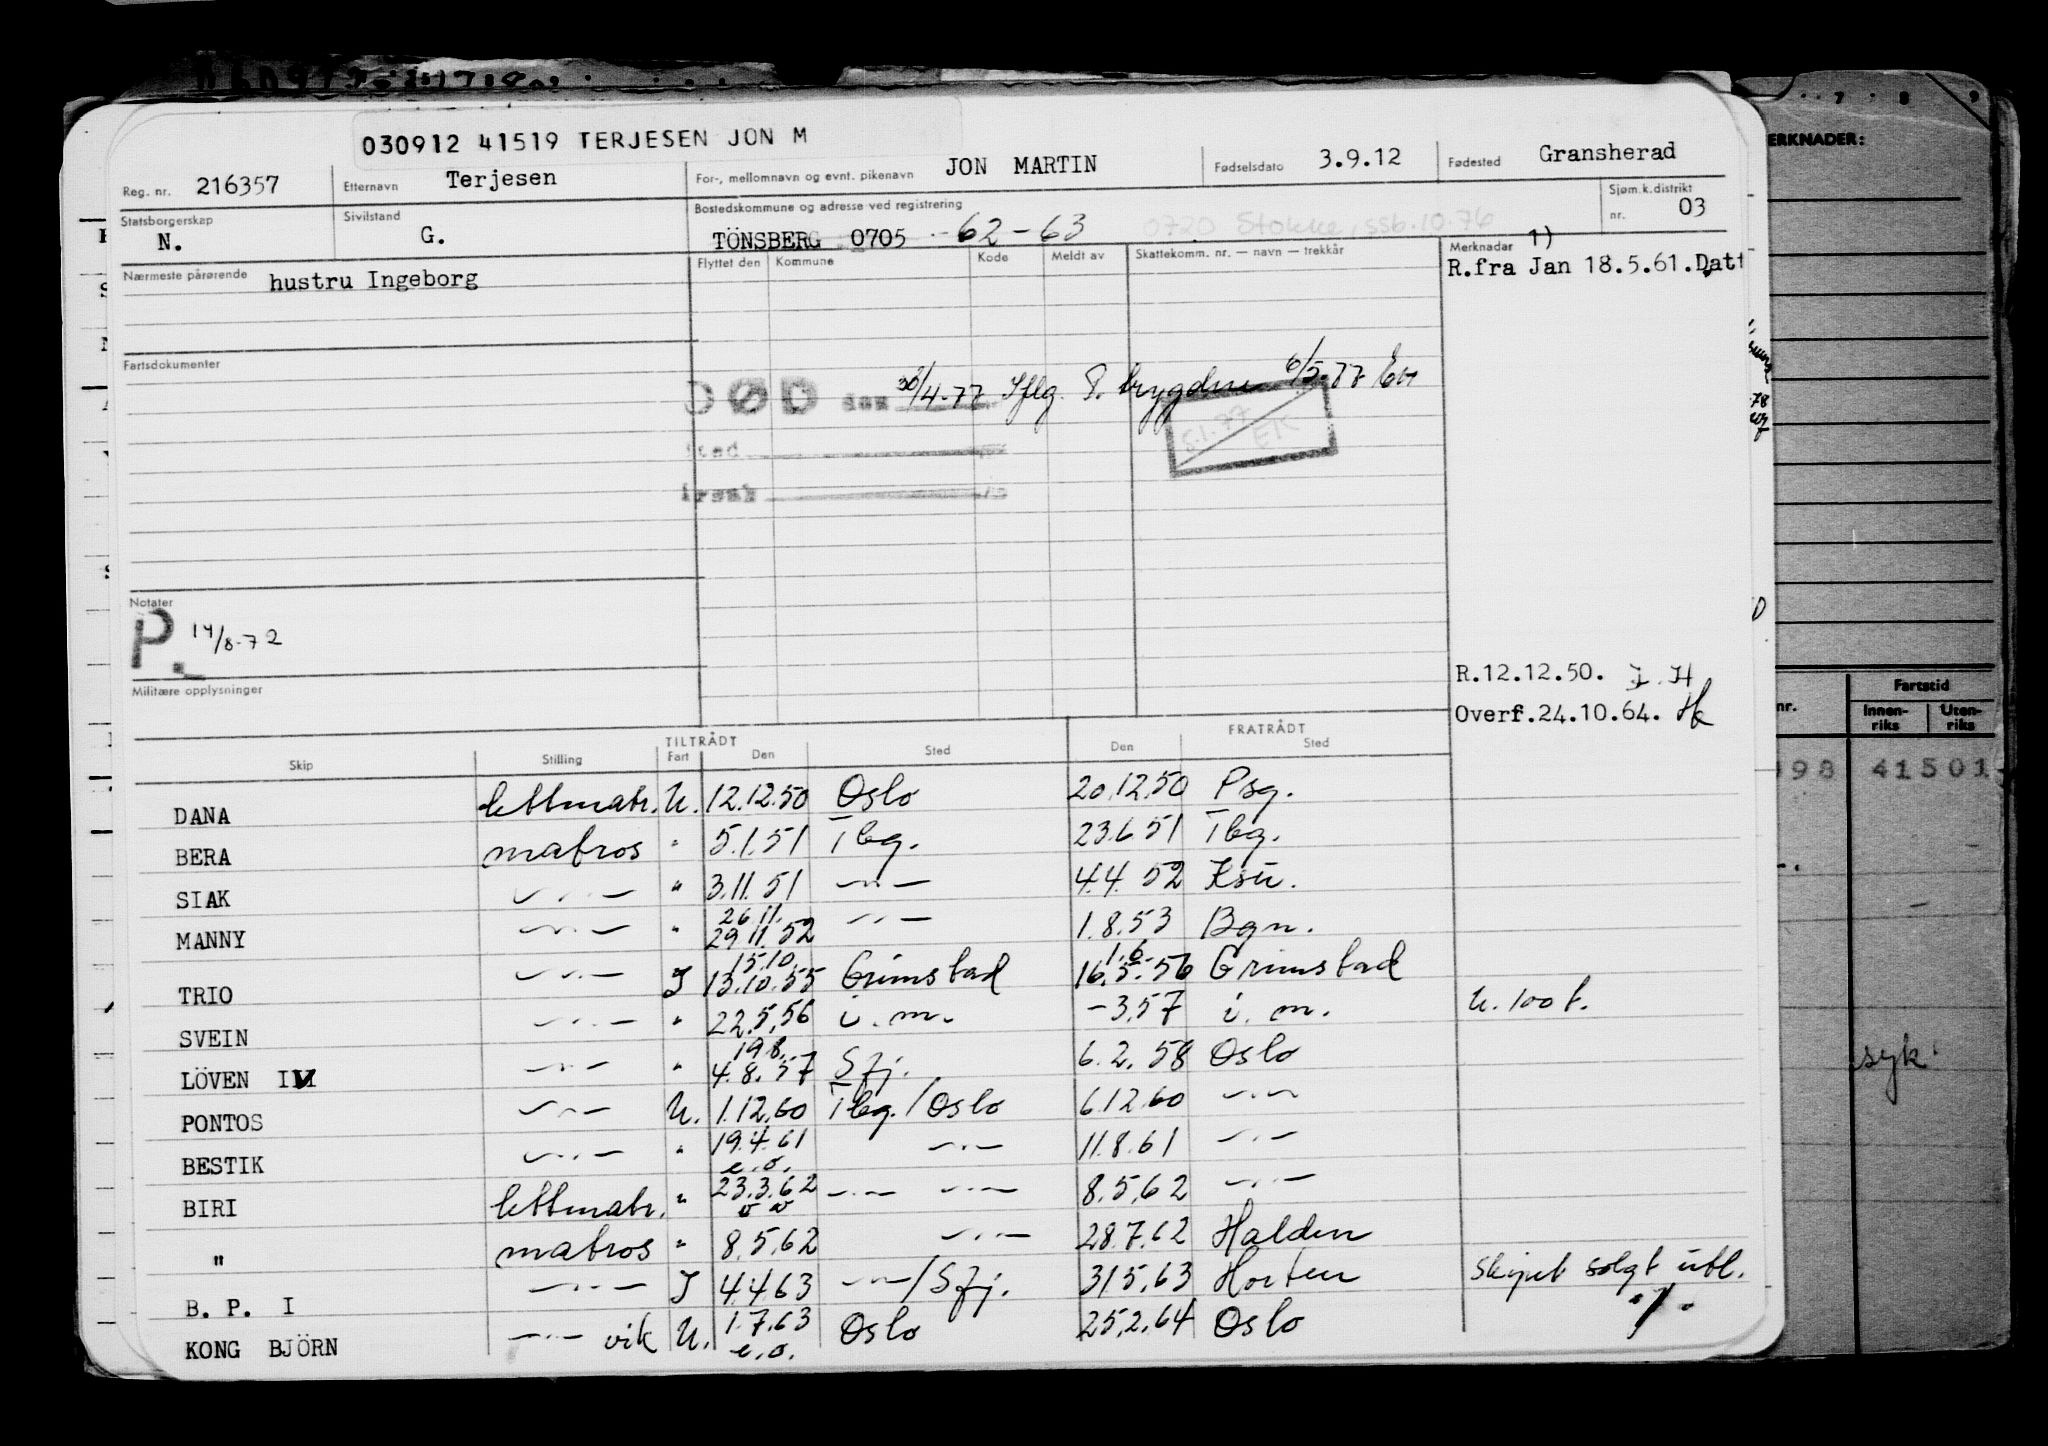 030912 41519 TERJESEN JON M
Reg. nr. 216357 Etternavn Terjesen For-, mellomnavn og evnt. pikenavn JON MARTIN Fødselsdato 3.9.12 Fødested Gransherad
Statsborgerskap N. Sivilstand G. Bostedskommune og adresse ved registrering TÖNSBERG 0705 -62-63 0720 Stokke, ssb.10.76 Sjøm.k.distrikt nr. 03
Nærmeste pårørende hustru Ingeborg Flyttet den Kommune Kode Meldt av Skattekomm. nr. — navn — trekkår Merknader 1)
R.fra Jan 18.5.61.Datt
Fartsdokumenter
DØD den 30/4-77 Iflg. P. trygden 6/5-77
sted
årsak
5.1.77
EK
Notater
P. 14/8-72
Militære opplysninger
R.12.12.50.
Overf.24.10.64.
TILTRÅDT FRATRÅDT
Skip Stilling Fart Den Sted Den Sted
DANA lettmatr. U. 12.12.50 Oslo 20.12.50 Psg.
BERA matros " 5.1.51 Tbg. 23.6 51 Tbg.
SIAK —"— " 3.11.51 —"— 4.4. 52 Ksu.
MANNY —"— " 26.11. 29.11.52 —"— 1.8.53 Bgn.
TRIO —"— I 15.10. 13.10.55 Grimstad 1.6. 16.5.56 Grimstad
SVEIN —"— " 22.5.56 i. m. -3.57 i. m. U. 100 t.
LÖVEN IV —"— " 19.8. 4.8.57 Sfj. 6.2.58 Oslo
PONTOS —"— U. 1.12.60 Tbg./Oslo 6.12.60 —"—
BESTIK —"— " 19.4.61 e.o. —"— 11.8.61 —"—
BIRI lettmatr. " 23.3.62 —"— —"— 8.5.62 —"—
" matros " 8.5.62 —"— 28.7.62 Halden
B. P. I —"— I 4.4.63 —"—/Sfj. 31.5.63 Horten Skipet solgt utl.
KONG BJÖRN —"— vik U. 1.7.63 e.o. Oslo 25.2.64 Oslo
ERKNADER:
7 8 9
nr. Fartstid
Innen-riks Uten-riks
98 41501
syk